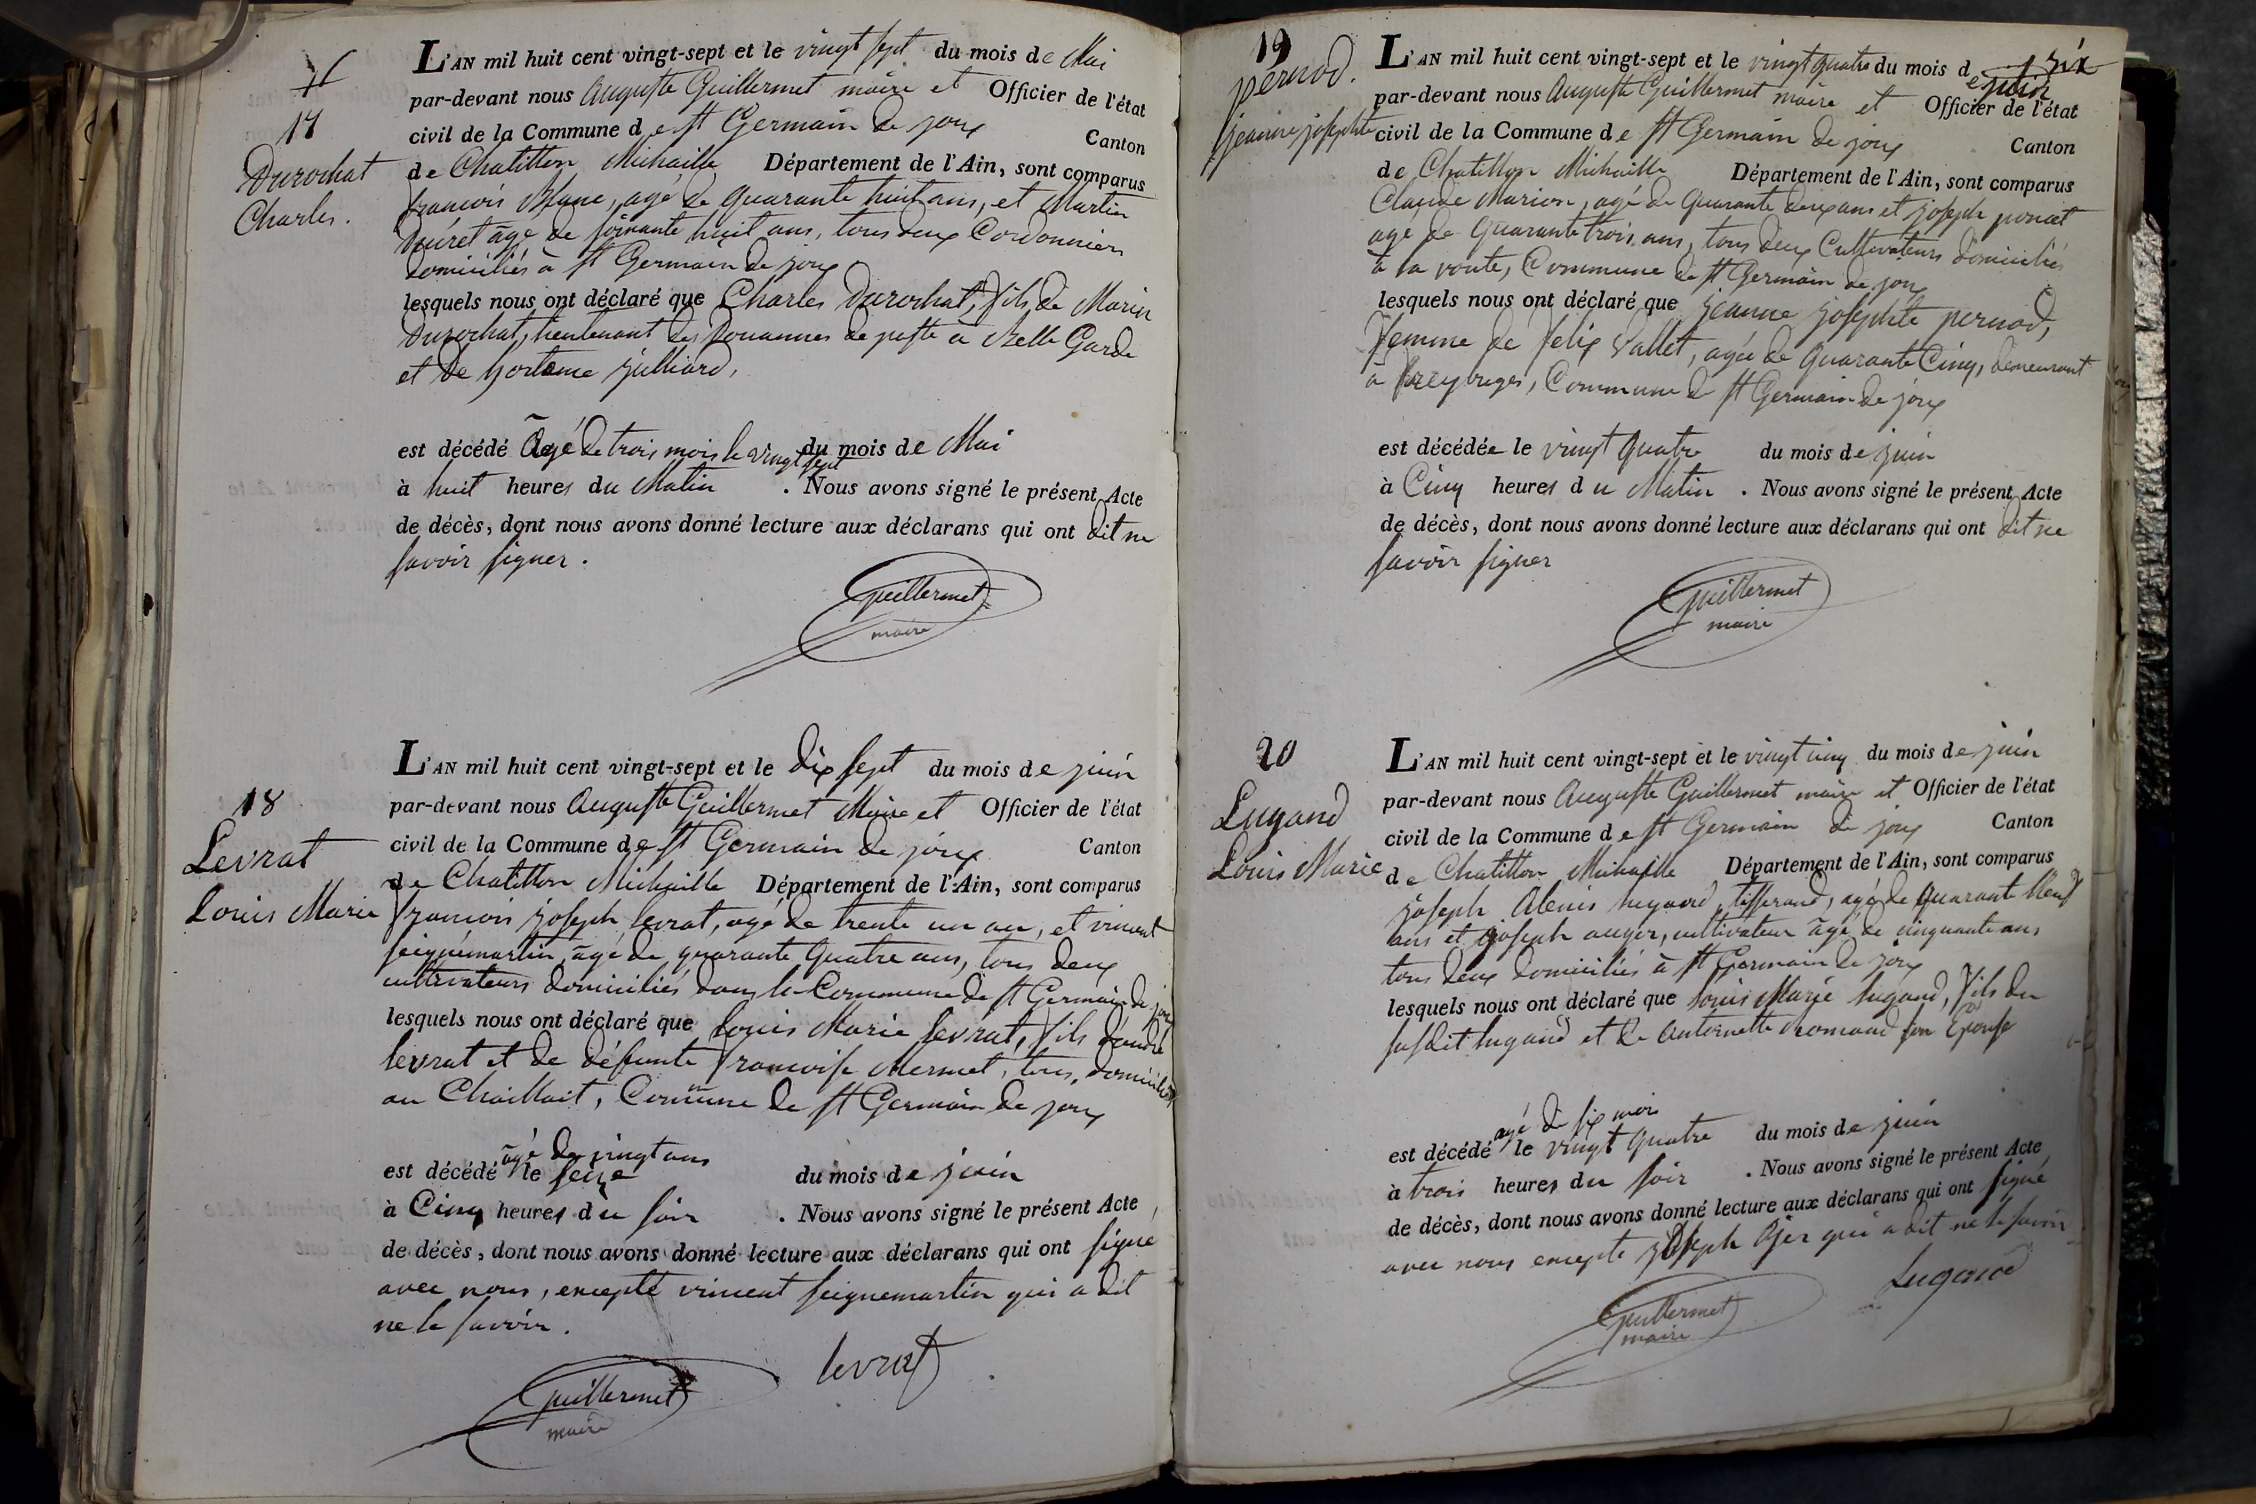 17
Durochat
Charles.
L'AN mil huit cent vingt-sept et le vingt sept du mois de Mai
par-devant nous Auguste Guillermet maire et Officier de l'état
civil de la Commune de St Germain de joux Canton
de Chatillon Michaille Département de l'Ain, sont comparus
francois Blanc, agé de quarante huit ans, et Martin
Ducret âgé de soixante huit ans, tous deux Cordonniers
domiciliés à St Germain de joux
lesquels nous ont déclaré que Charles Durochat, fils de Marin
Durochat, lieutenant des Douannes de poste a Belle Garde
et de hortense julliard,
est décédé Âgé de trois mois le vingt sept du mois de Mai
à huit heures du Matin . Nous avons signé le présent Acte
de décès, dont nous avons donné lecture aux déclarans qui ont dit ne
savoir signer.
Guillermet
maire
18
Levrat
Louis Marie
L'AN mil huit cent vingt-sept et le dix sept du mois de juin
par-devant nous Auguste Guillermet Maire et Officier de l'état
civil de la Commune de St Germain de joux Canton
de Chatillon Michaille Département de l'Ain, sont comparus
francois joseph levrat, agé de trente un an, et vincent
seignemartin, âgé de quarante quatre ans, tous deux
cultivateurs domiciliés dans la Commune de St Germain de joux
lesquels nous ont déclaré que Louis Marie levrat, fils d'andré
levrat et de défunte francoise Mermet, tous domiciliés
au Chaillait, Commune de St Germain de joux
âgé de vingt ans
est décédé le seize du mois de juin
à Cinq heures du soir . Nous avons signé le présent Acte
de décès, dont nous avons donné lecture aux déclarans qui ont signé
avec nous, excepté vincent seignemartin qui a dit
ne le savoir.
Guillermet
maire
levrat
19
pernod.
jeanne josephte
L'AN mil huit cent vingt-sept et le vingt quatre du mois de juin
par-devant nous Auguste Guillermet maire et Officier de l'état
civil de la Commune de St Germain de joux Canton
de Chatillon Michaille Département de l'Ain, sont comparus
Claude Marion, agé de quarante deux ans et joseph poncet
agé de quarante trois ans, tous deux Cultivateurs domiciliés
à la voute, Commune de St Germain de joux
lesquels nous ont déclaré que jeanne josephte pernod,
femme de felix Vallet, agée de quarante Cinq, demeurant
à , Commune de St Germain de joux
est décédée le vingt quatre du mois de juin
à Cinq heures du Matin . Nous avons signé le présent Acte
de décès, dont nous avons donné lecture aux déclarans qui ont dit ne
savoir signer
Guillermet
maire
20
Lugand
Louis Marie
L'AN mil huit cent vingt-sept et le vingt cinq du mois de juin
par-devant nous Auguste Guillermet maire et Officier de l'état
civil de la Commune de St Germain de joux Canton
de Chatillon Michaille Département de l'Ain, sont comparus
joseph Alexis lugand, tisserand, agé de quarante Neuf
ans et joseph auger, cultivateur âgé de cinquante ans
tous deux domiciliés à St Germain de joux
lesquels nous ont déclaré que louis Marie lugand, fils du
susdit lugand et de Antoinette romand son Épouse
agé de six mois
est décédé le vingt quatre du mois de juin
à trois heures du soir . Nous avons signé le présent Acte
de décès, dont nous avons donné lecture aux déclarans qui ont signé
avec nous excepte joseph Ojer qui a dit ne le savoir
Guillermet
maire
Lugand